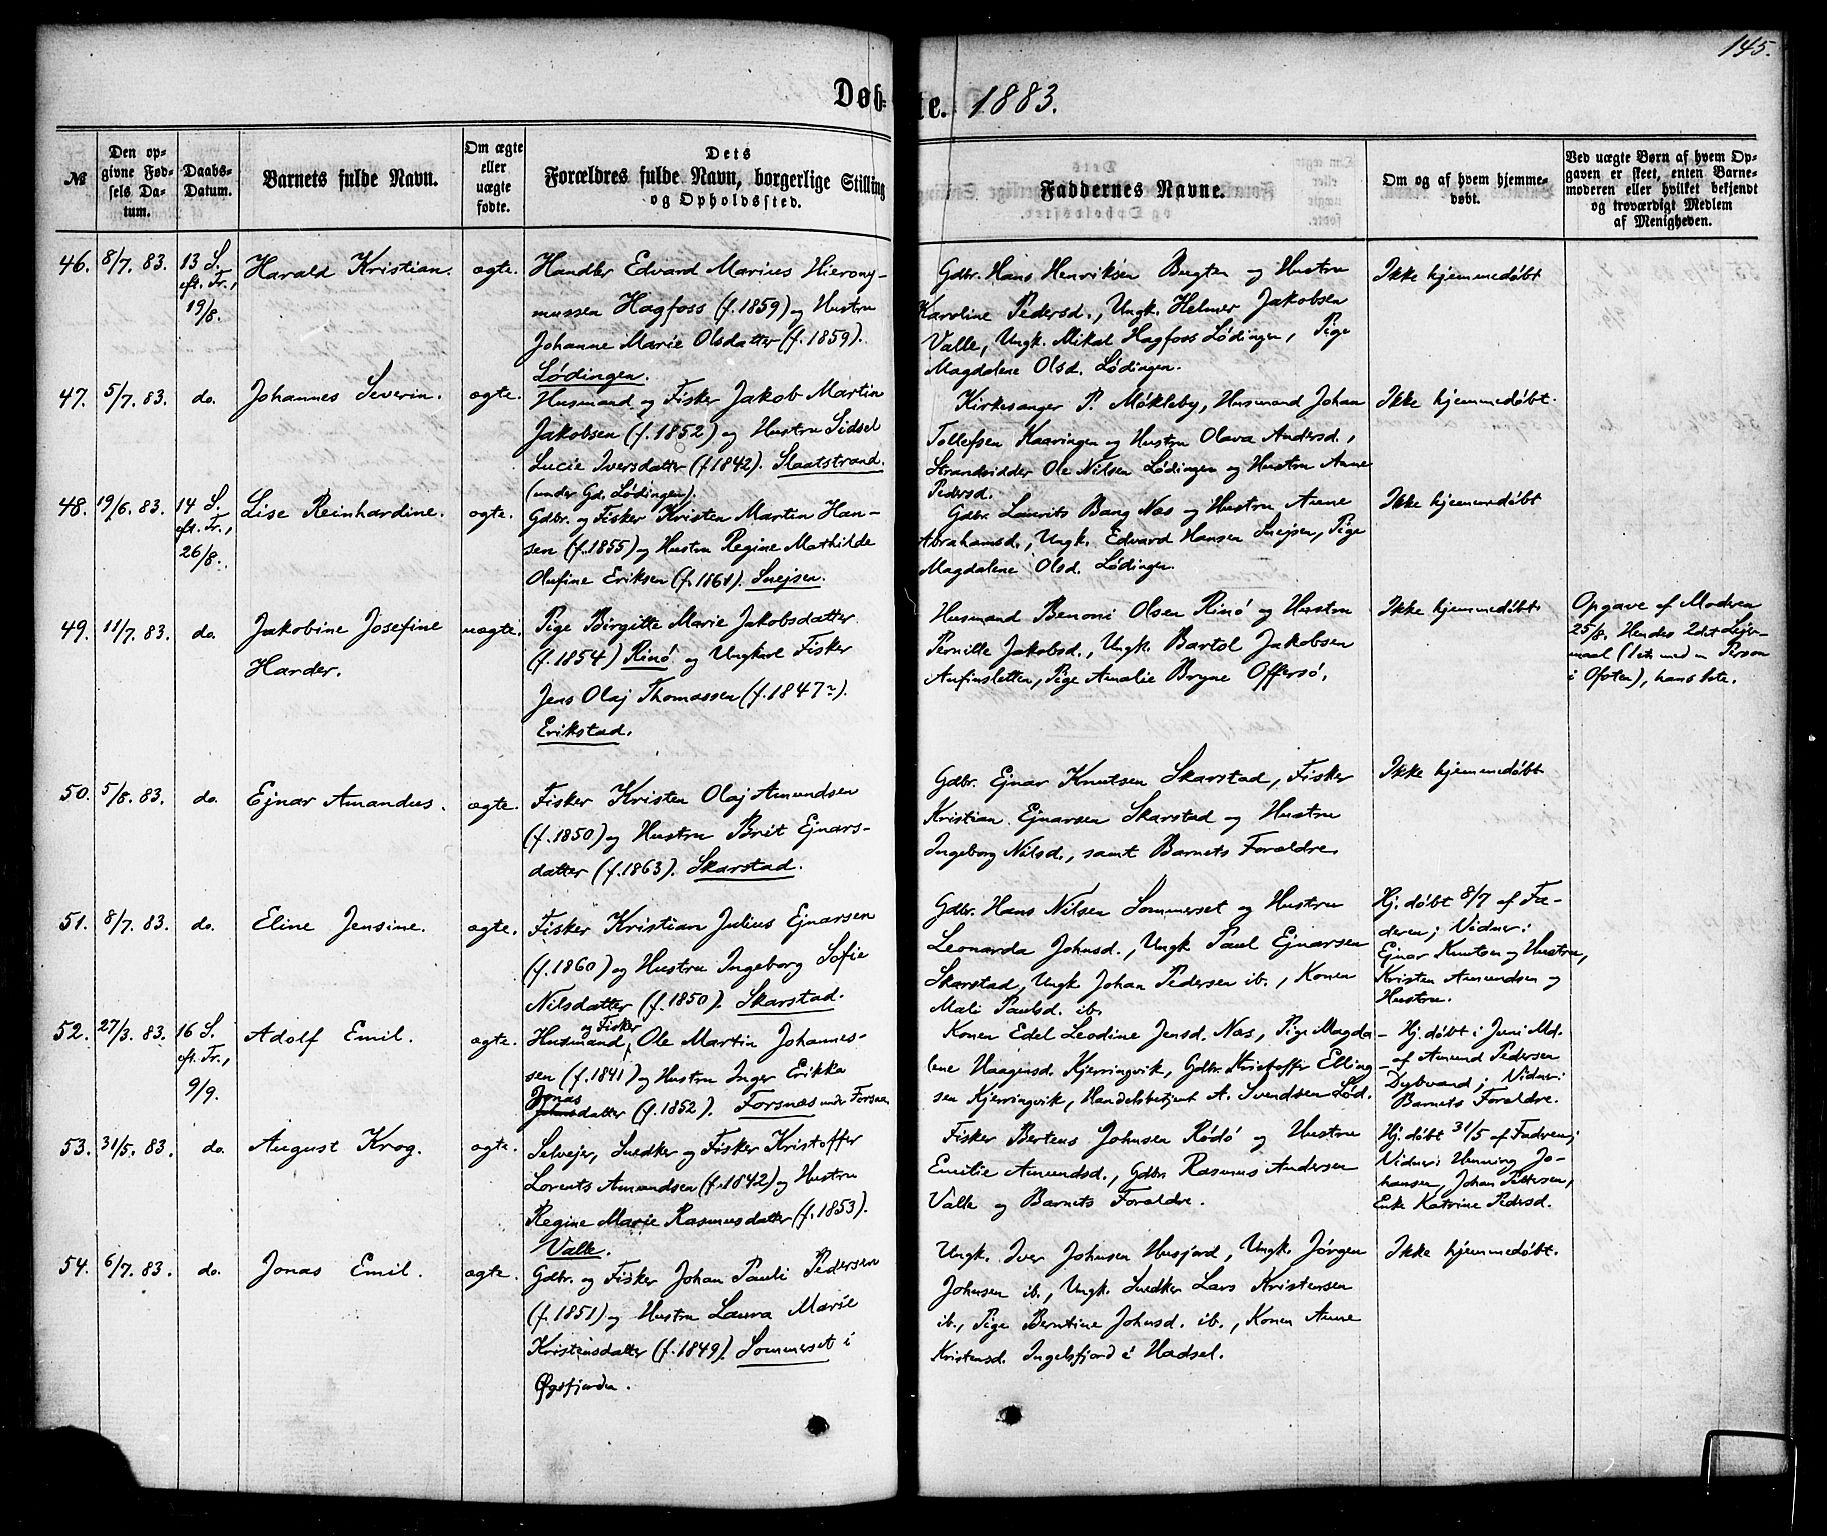 145.
Døb-te. 1883.
№
Den op-
givne Fød-
sels Da-
tum.
Daabs-
Datum.
Barnets fulde Navn.
Om ægte
eller
uægte
fødte.
Dets
Forældres fulde Navn, borgerlige Stilling
og Opholdssted.
Faddernes Navne.
Om og af hvem hjemme-
døbt.
Ved uægte Børn af hvem Op-
gaven er skeet, enten Barne-
moderen eller hvilket bekjendt
og troværdigt Medlem
af Menigheden.
46. 8/7. 83. 13 S.
eft. Tr.,
19/8.
Harald Kristian. ægte.
Handler Edvard Marius Hierony-
mussen Hagfoss (f. 1859) og Hustru
Johanne Marie Olsdatter (f. 1859).
Lødingen.
Gdbr. Hans Henriksen Bugten og Hustru
Karoline Pedersd., Ungk. Helmer Jakobsen
Valle, Ungk. Mikal Hagfoss Lødingen, Pige
Magdalene Olsd. Lødingen.
Ikke hjemmedøbt
47. 5/7. 83. do. Johannes Severin. ægte.
Husmand og Fisker Jakob Martin
Jakobsen (f. 1852) og Hustru Sidsel
Lucie Iversdatter (f. 1842). Slaatstrand.
(under Gd. Lødingen).
Kirkesanger P. Møkleby, Husmand Johan
Tollefsen Kaaringen og Hustru Olava Andersd.,
Strandsidder Ole Nilsen Lødingen og Hustru Anne
Pedersd.
Ikke hjemmedøbt.
48. 19/6. 83. 14 S.
eft. Tr.,
26/8.
Lise Reinhardine. ægte.
Gdbr. og Fisker Kristen Martin Han-
sen (f. 1855) og Hustru Regine Mathilde
Olufine Eriksen (f. 1861). Snejsen.
Gdbr. Laurits Bang Næs og Hustru Anne
Abrahamsd., Ungk. Edvard Hansen Snejsen, Pige
Magdalene Olsd. Lødingen.
Ikke hjemmedøbt
49. 11/7. 83. do. Jakobine Josefine
Harder.
uægte.
Pige Birgitte Marie Jakobsdatter
(f. 1854) Rinø og Ungkarl Fisker
Jens Olaj Thomassen (f. 1847?).
Erikstad.
Husmand Benoni Olsen Rinø og Hustru
Pernille Jakobsd., Ungk. Bartol Jakobsen
Anfinsletten, Pige Amalie Bryne Offersø.
Ikke hjemmedøbt.
Opgave af Modren
25/8. Hendes 2det Lejer-
maal (1ste med en Person
i Ofoten), hans 1ste.
50. 5/8. 83. do. Ejnar Amandus. ægte.
Fisker Kristen Olaj Amundsen
(f. 1850) og Hustru Brit Ejnars-
datter (f. 1863). Skarstad.
Gdbr. Ejnar Knutsen Skarstad, Fisker
Kristian Ejnarsen Skarstad og Hustru
Ingeborg Nilsd., samt Barnets Forældre.
Ikke hjemmedøbt
51. 8/7. 83. do. Eline Jensine. ægte.
Fisker Kristian Julius Ejnarsen
(f. 1860) og Hustru Ingeborg Sofie
Nilsdatter (f. 1850). Skarstad.
Gdbr. Hans Nilsen Sommerset og Hustru
Leonarda Johnsd., Ungk. Paul Ejnarsen
Skarstad, Ungk. Johan Pedersen ib., Konen
Mali Paulsd. ib.
Hj. døbt 8/7 af Fa-
deren; Vidner:
Ejnar Knutsen og Hustru,
Kristen Amundsen og
Hustru.
52. 27/3. 83. 16 S.
eft. Tr.,
9/9.
Adolf Emil. ægte.
og Fisker
Husmand, Ole Martin Johannes-
sen (f. 1841) og Hustru Inger Erikka
Jonas
datter (f. 1852). Forsnæs under Forsnæs
Konen Edel Leodine Jensd. Næs, Pige Magda-
lene Haagensd. Kjerringvik, Gdbr. Kristoffer Elling-
sen Kjerringvik, Handelsbetjent A. Svendsen Lød.
Hj. døbt i Juni Md.
af Amund Pedersen
Dybvand; Vidner:
Barnets Forældre.
53. 31/5. 83. do. August Krog. ægte.
Selvejer, Snedker og Fisker Kristoffer
Lorents Amundsen (f. 1842) og Hustru
Regine Marie Rasmusdatter (f. 1853).
Valle.
Fisker Bertens Johnsen Rødø og Hustru
Emilie Amundsd., Gdbr. Rasmus Andersen
Valle og Barnets Forældre.
Hj. døbt 31/5 af Fadren;
Vidner: Henning Jo-
hansen, Johan Pettersen,
Enke Katrine Pedersd.
54. 6/7. 83. do. Jonas Emil. ægte.
Gdbr. og Fisker Johan Pauli Pedersen
(f. 1851) og Hustru Laura Marie
Kristensdatter (f. 1849). Sommerset i
Øgsfjorden.
Ungk. Iver Johnsen Husjord, Ungk. Jørgen
Johnsen ib., Ungk. Snedker Lars Kristensen
ib., Pige Berntine Johnsd. ib., Konen Anne
Kristensd. Ingelsfjord i Hadsel.
Ikke hjemmedøbt.